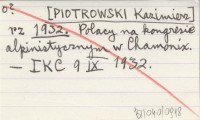 o? [PIOTROWSKI Kazimierz]
rz 1932. Polacy na kongresie
alpinistycznym w Chamonix.
— IKC 9 IX 1932.